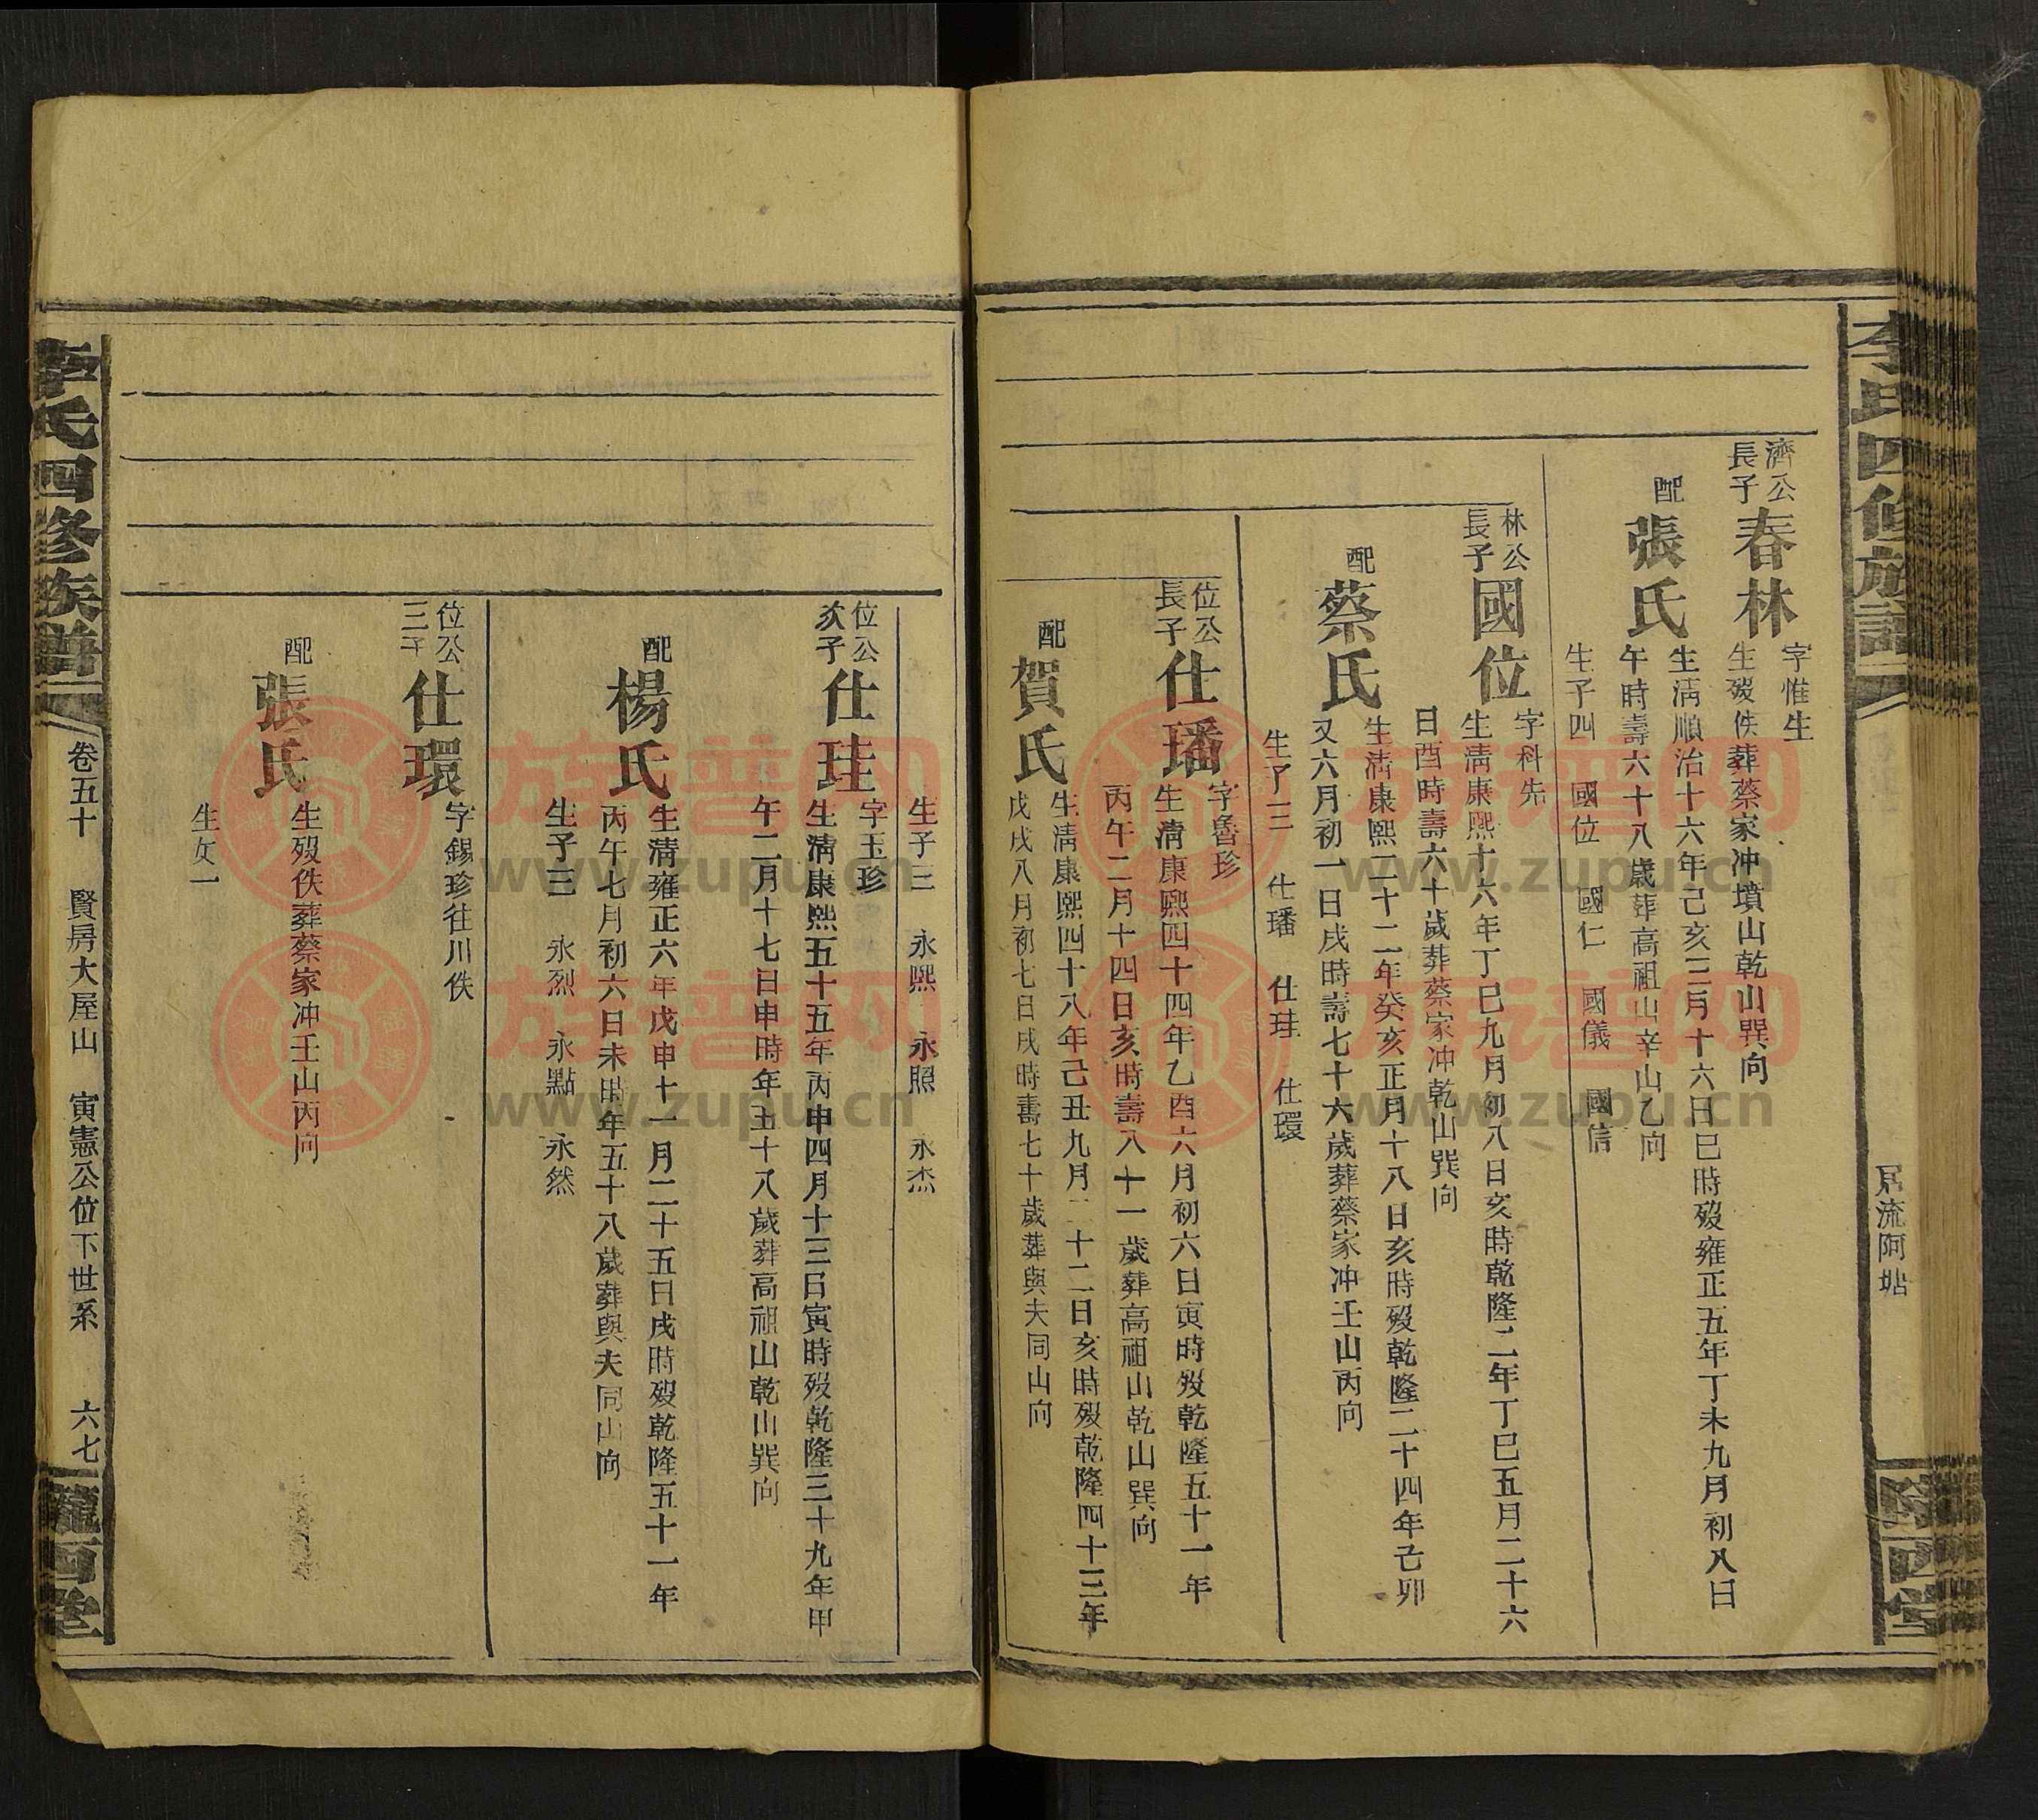 李氏四修族譜
居流阿塘
隴西堂
濟公
長子
春林
字惟生
生歿佚葬蔡家冲墳山乾山巽向
配
張氏
生清順治十六年己亥三月十六日巳時歿雍正五年丁未九月初八日
午時壽六十八歲葬高祖山辛山乙向
生子四 國位 國仁 國儀 國信
林公
長子
國位
字科先
生清康熙十六年丁巳九月初八日亥時乾隆二年丁巳五月二十六
日酉時壽六十歲葬蔡家冲乾山巽向
配
蔡氏
生清康熙二十二年癸亥正月十八日亥時歿乾隆二十四年己卯
又六月初一日戌時壽七十六歲葬蔡家冲壬山丙向
生子三 仕璠 仕珪 仕環
位公
長子
仕璠
字魯珍
生清康熙四十四年乙酉六月初六日寅時歿乾隆五十一年
丙午二月十四日亥時壽八十一歲葬高祖山乾山巽向
配
賀氏
生清康熙四十八年己丑九月二十二日亥時歿乾隆四十三年
戊戌八月初七日戌時壽七十歲葬與夫同山向
生子三 永熙 永照 永杰
位公
次子
仕珪
字玉珍
生清康熙五十五年丙申四月十三日寅時歿乾隆三十九年甲
午二月十七日申時年五十八歲葬高祖山乾山巽向
配
楊氏
生清雍正六年戊申十一月二十五日戌時歿乾隆五十一年
丙午七月初六日未時年五十八歲葬與夫同山向
生子三 永烈 永點 永然
位公
三子
仕環
字錫珍往川佚
配
張氏
生歿佚葬蔡家冲壬山丙向
生女一
李氏四修族譜
卷五十 賢房大屋山 寅憲公位下世系 六七
隴西堂
族谱网
www.zupu.cn
族谱网
www.zupu.cn
族谱网
www.zupu.cn
族谱网
www.zupu.cn